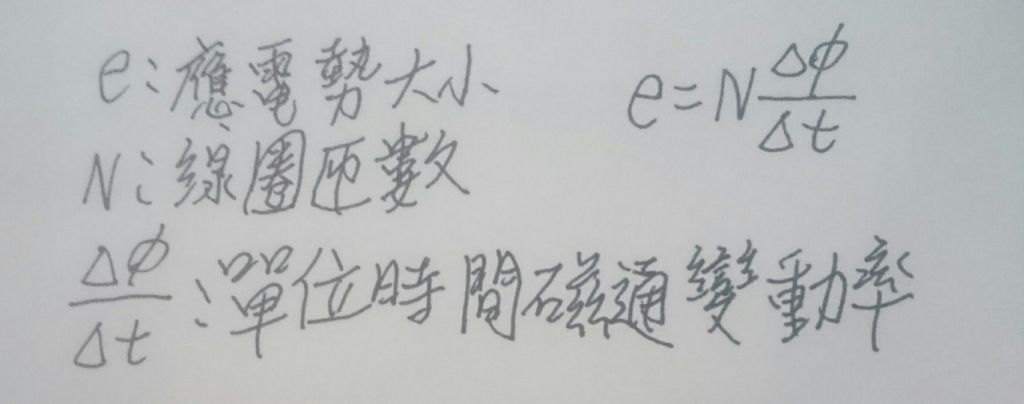 e：應電勢大小
e=N Δϕ/Δt
N：線圈匝數
Δϕ/Δt：單位時間磁通變動率